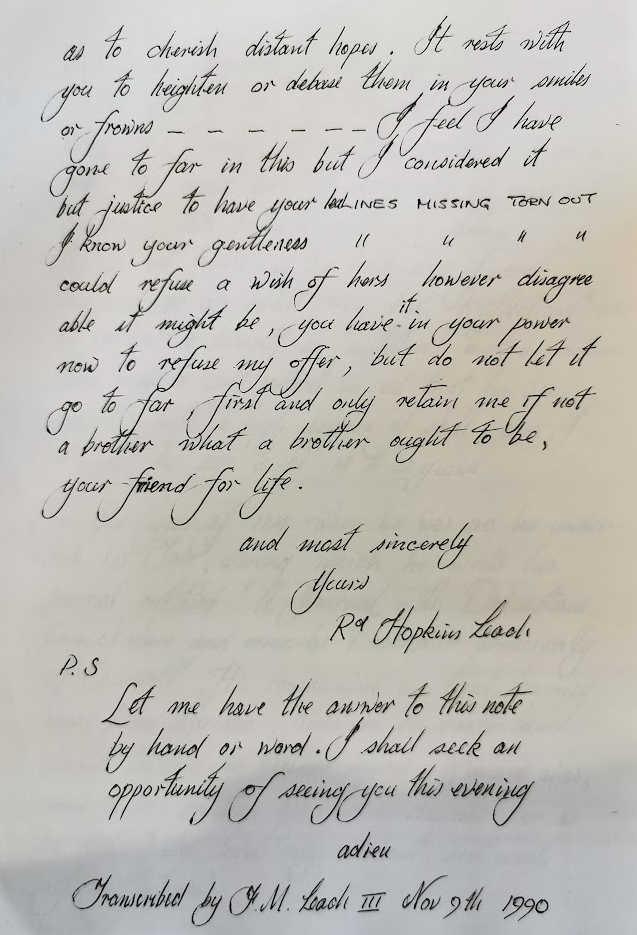 as to cherish distant hopes. It rests with
you to heighten or debase them in your smiles
or frowns – – – – – – – I feel I have
gone to far in this but I considered it
but justice to have your LINES MISSING TORN OUT
I know your gentleness " " " "
could refuse a wish of hers however disagree
able it might be, you have it in your power
now to refuse my offer, but do not let it
go to far, first and only retain me if not
a brother what a brother ought to be,
your friend for life.
and most sincerely
Yours
Rd Hopkins Leach
P.S
Let me have the answer to this note
by hand or word. I shall seek an
opportunity of seeing you this evening
adieu
Transcribed by F.M. Leach III Nov 9th 1990